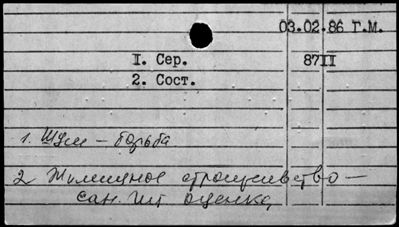 03.02.86 Г.М.
I. Сер. 87II
2. Сост.
1. Шум – борьба
2 Жилищное строительство –
сан. гиг оценка